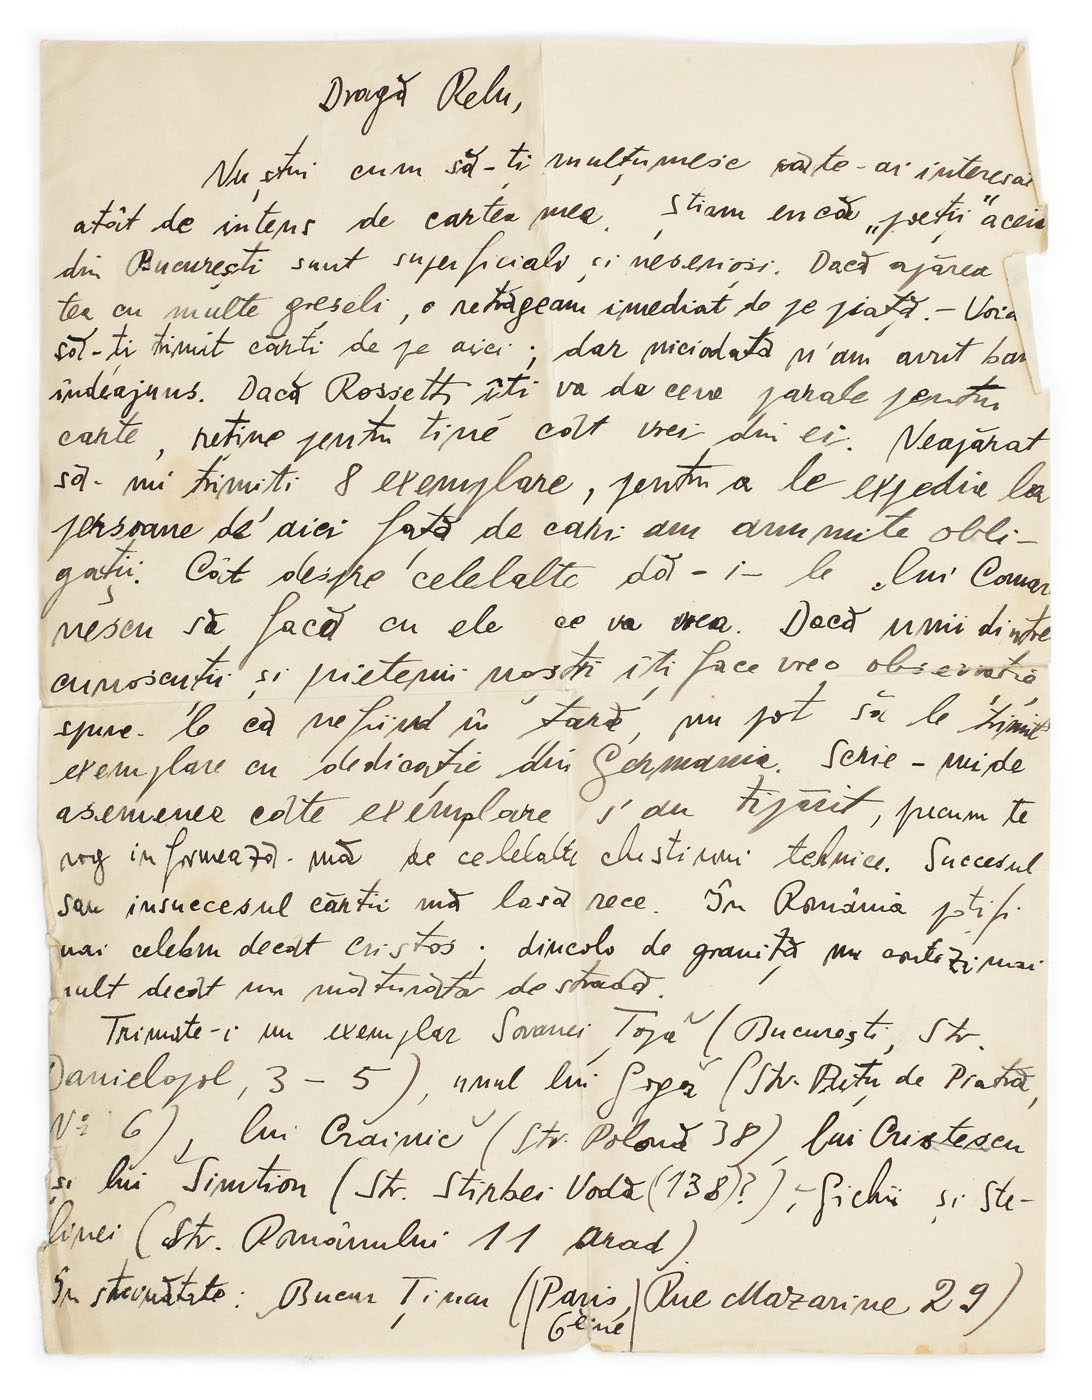 Dragă Relu,
Nu știu cum să-ți mulțumesc că te-ai interesat
atât de intens de cartea mea. Știam că „poeții" aceia
din București sunt superficiali și neserioși. Dacă apărea
tea cu multe greșeli, o retrăgeam imediat de pe piață. - Voia
să-ți trimit cărți de pe aici; dar niciodată n'am avut ban
îndeajuns. Dacă Rossetti îți va da ceva parale pentru
carte, reține pentru tine cât vrei din ei. Neapărat
să-mi trimiti 8 exemplare, pentru a le expedia la
persoane de aici față de cari am anumite obli-
gații. Cât despre celelalte dă-i-le lui Comar
nescu să facă cu ele ce va vrea. Dacă unii dintre
cunoscuții și prietenii noștri îți face vreo observație
spune-le că nefiind în țară, nu pot să le trimit
exemplare cu dedicație din Germania. Scrie-mi de
asemenea câte exemplare s'au tipărit, precum te
rog informează-mă de celelalte chestiuni tehnice. Succesul
sau insuccesul cărții mă lasă rece. În România poți fi
mai celebru decât Cristos; dincolo de graniță nu contezi mai
mult decât un măturător de stradă.
Trimite-i un exemplar Soranei Țopa (București, Str.
Danielopol, 3-5), unul lui Goga (Str. Puțu de Piatră,
Nº 6), lui Crainic (Str. Polonă 38), lui Cristescu
și lui Simtion (Str. Știrbei Vodă (138)?), Gichii și Ste-
linei (Str. Românului 11 Arad)
În străinătate: Bucur Țincu (Paris, Rue Mazarine 29)
6eme